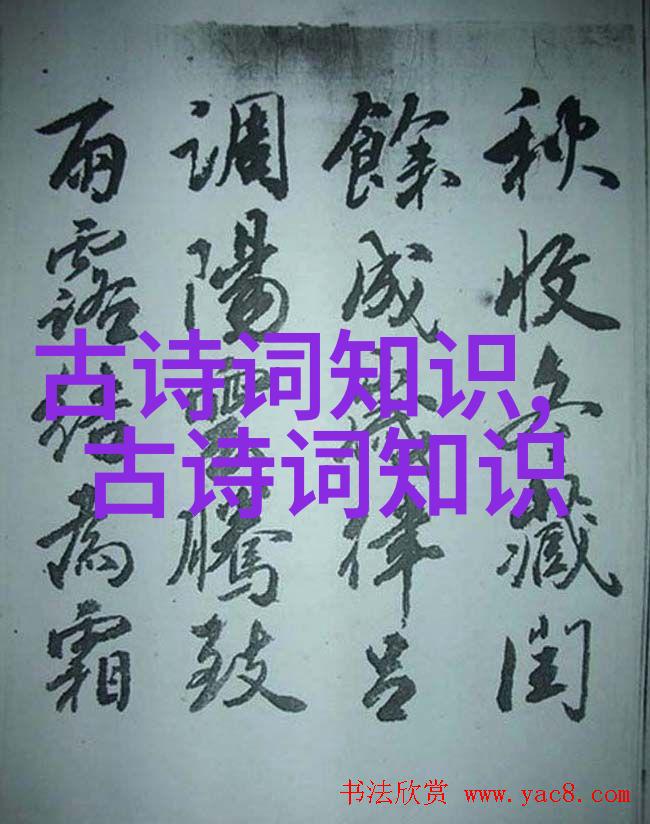 秋收冬藏閏
餘成歲律呂
調陽雲騰致
雨露結為霜
古诗词知识,
古诗词知识
书法欣赏 www.yac8.com